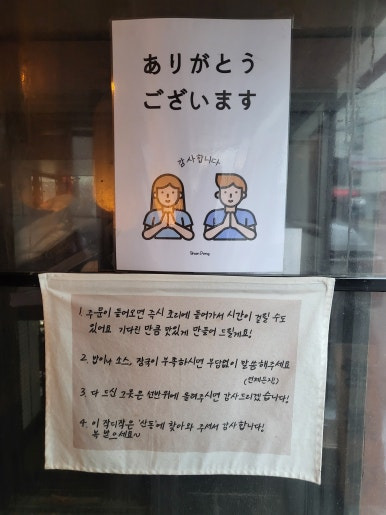 ありがとう
ございます
감사합니다
Shan Dong
1. 주문이 들어오면 즉시 조리에 들어가서 시간이 걸릴 수도
있어요 기다린 만큼 맛있게 만들어 드릴게요!
2. 밥이나 소스, 장국이 부족하시면 부담없이 말씀해주세요
(언제든지)
3. 다 드신 그릇은 선반위에 올려주시면 감사드리겠습니다!
4. 이 작디작은 '산동'에 찾아와 주셔서 감사합니다!
복 받으세요~